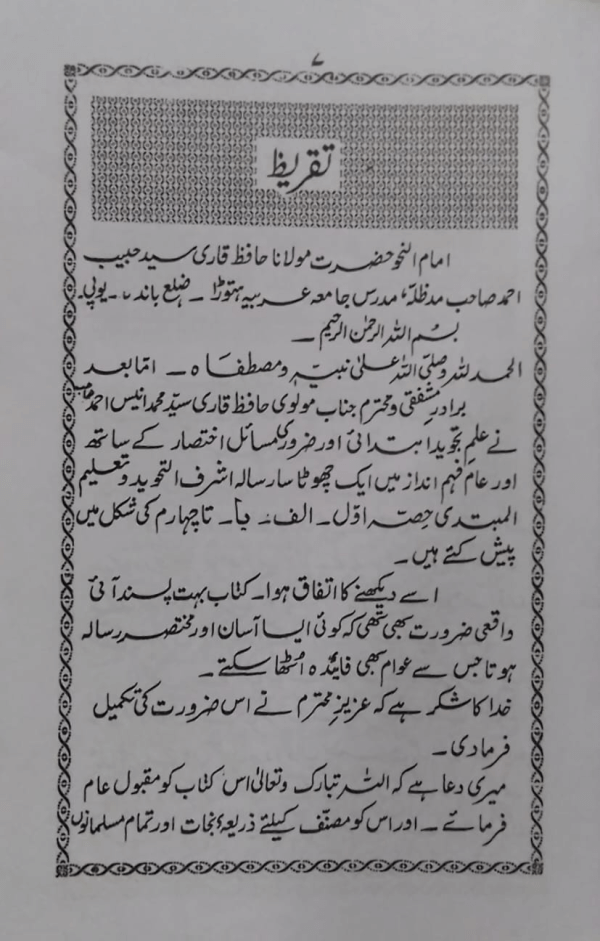 ۷
تقریظ
امام النحو حضرت مولانا حافظ قاری سید حبیب
احمد صاحب مدظلہٗ مدرس جامعہ عربیہ ہتوڑا۔ ضلع باندہ۔ یوپی۔
بسم اللہ الرحمٰن الرحیم ۔
الحمد للہ وصلی اللہ علیٰ نبیہٖ ومصطفاہ ۔ امّا بعد
برادرِ مشفقی و محترم جناب مولوی حافظ قاری سیّد محمد انیس احمد صاحب
نے علمِ تجوید ابتدائی اور ضروری مسائل اختصار کے ساتھ
اور عام فہم انداز میں ایک چھوٹا سا رسالہ اشرف التجوید وتعلیم
المبتدی حصہ اوّل۔ الف۔ با۔ تا چہارم کی شکل میں
پیش کئے ہیں۔
اسے دیکھنے کا اتفاق ہوا۔ کتاب بہت پسند آئی
واقعی ضرورت بھی تھی کہ کوئی ایسا آسان اور مختصر رسالہ
ہوتا جس سے عوام بھی فایدہ اُٹھا سکتے۔
خدا کا شکر ہے کہ عزیزِ محترم نے اس ضرورت کی تکمیل
فرمادی۔
میری دعا ہے کہ اللہ تبارک وتعالیٰ اس کتاب کو مقبول عام
فرمائے۔ اور اس کو مصنّف کیلئے ذریعۂ نجات اور تمام مسلمانوں